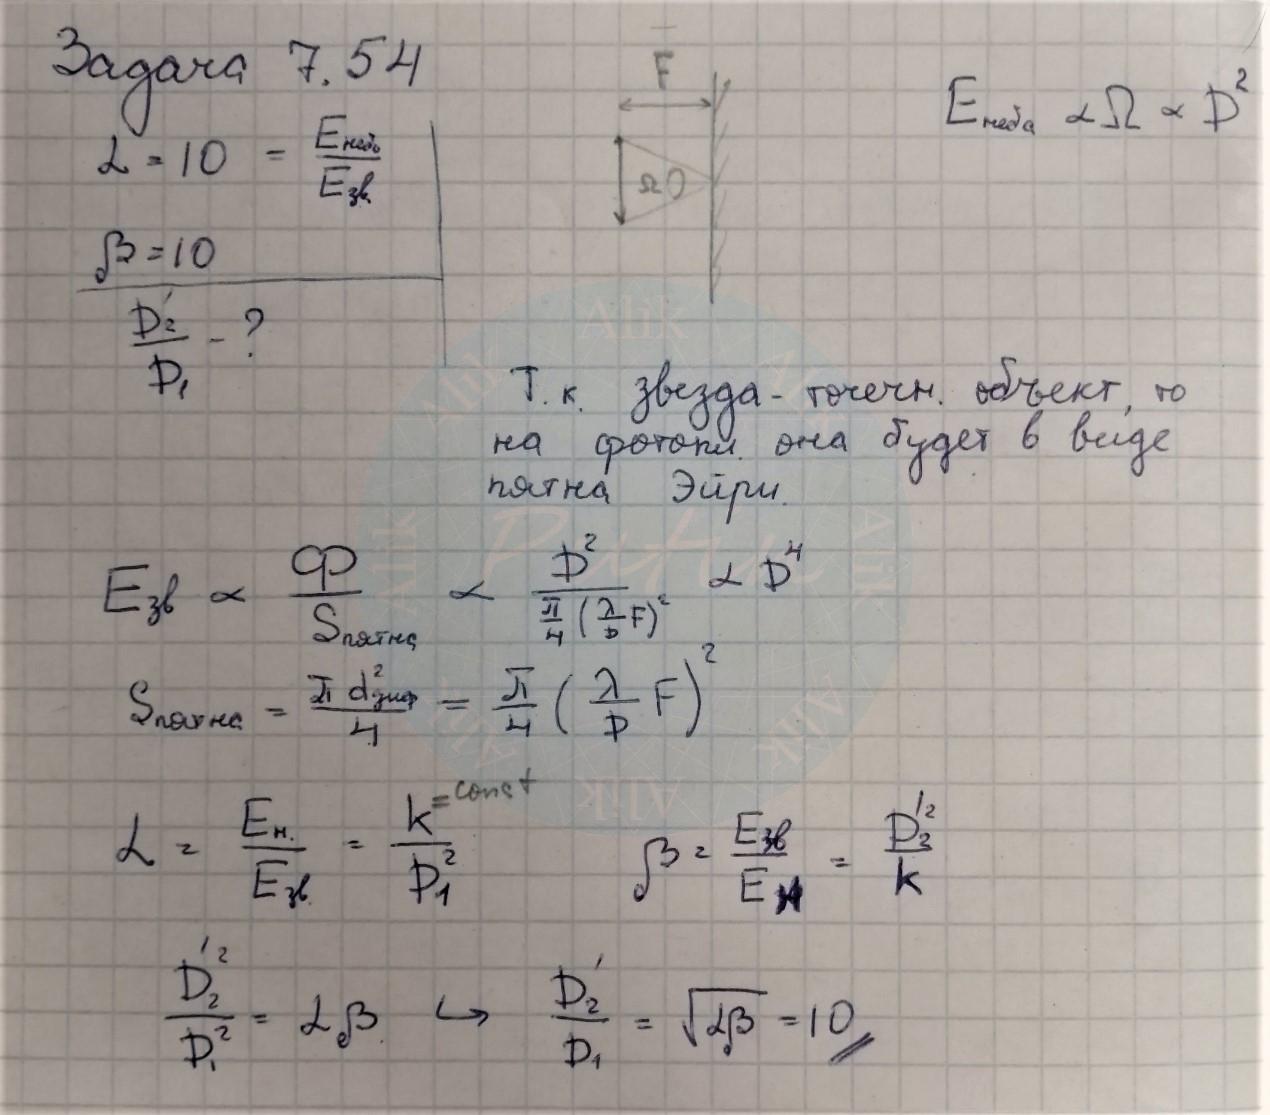 Задача 7.54
F
E неба ∝ Ω ∝ D²
α = 10 = E небо / E зв.
Ω
β = 10
D₂' / D₁ - ?
Т.к. звезда - точечн. объект, то
на фотопл. она будет в виде
пятна Эйри.
E зв ∝ Ф / S пятна ∝ D² / π/4 (λ/D F)² ∝ D⁴
S пятна = π d² диф / 4 = π/4 (λ/D F)²
α = E н. / E зв. = k = const / D₁² β = E зв / E н = D₂'² / k
D₂'² / D₁² = αβ ↪ D₂' / D₁ = √αβ = 10
Alik
Putin